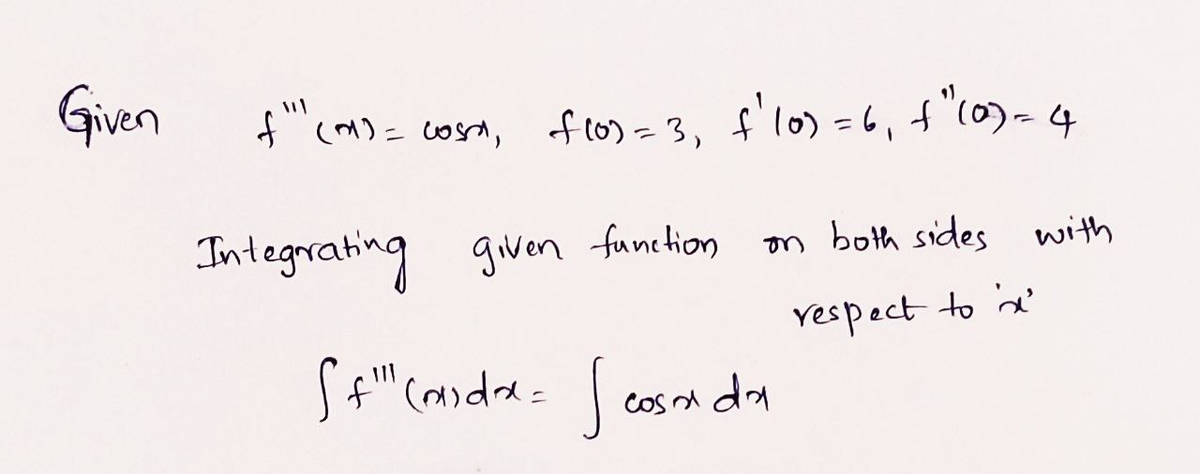 Given f'''(x) = cosx, f(0) = 3, f'(0) = 6, f''(0) = 4
Integrating given function on both sides with
respect to 'x'
∫ f'''(x)dx = ∫ cosx dx